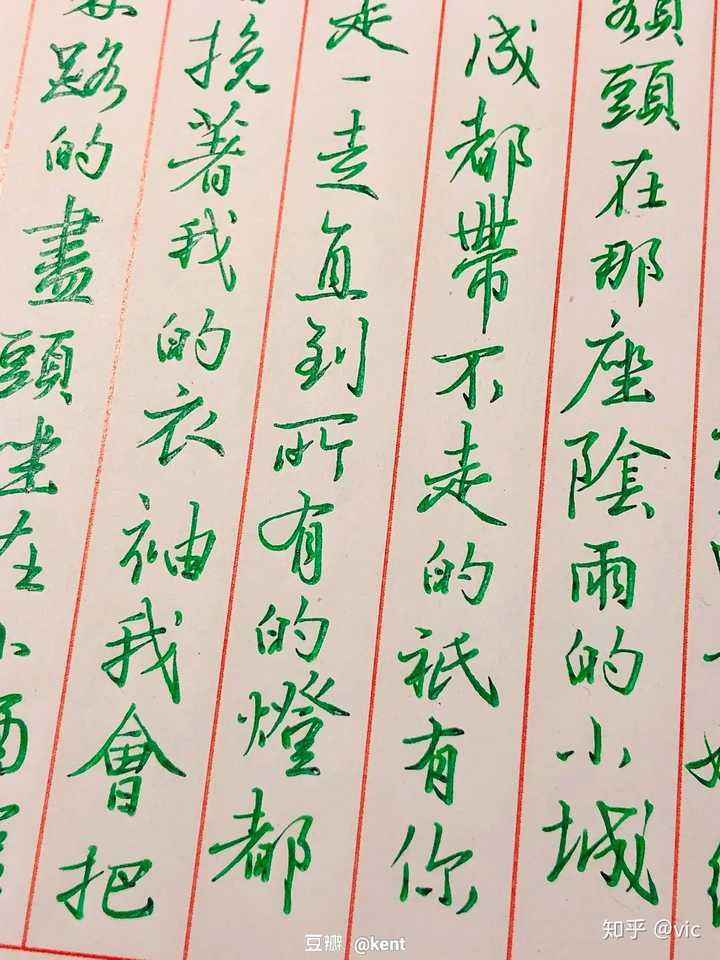 頭在那座陰雨的小城
成都帶不走的祇有你
走一走直到所有的燈都
挽著我的衣袖我會把
路的盡頭坐在小酒
豆瓣 @kent
知乎 @vic